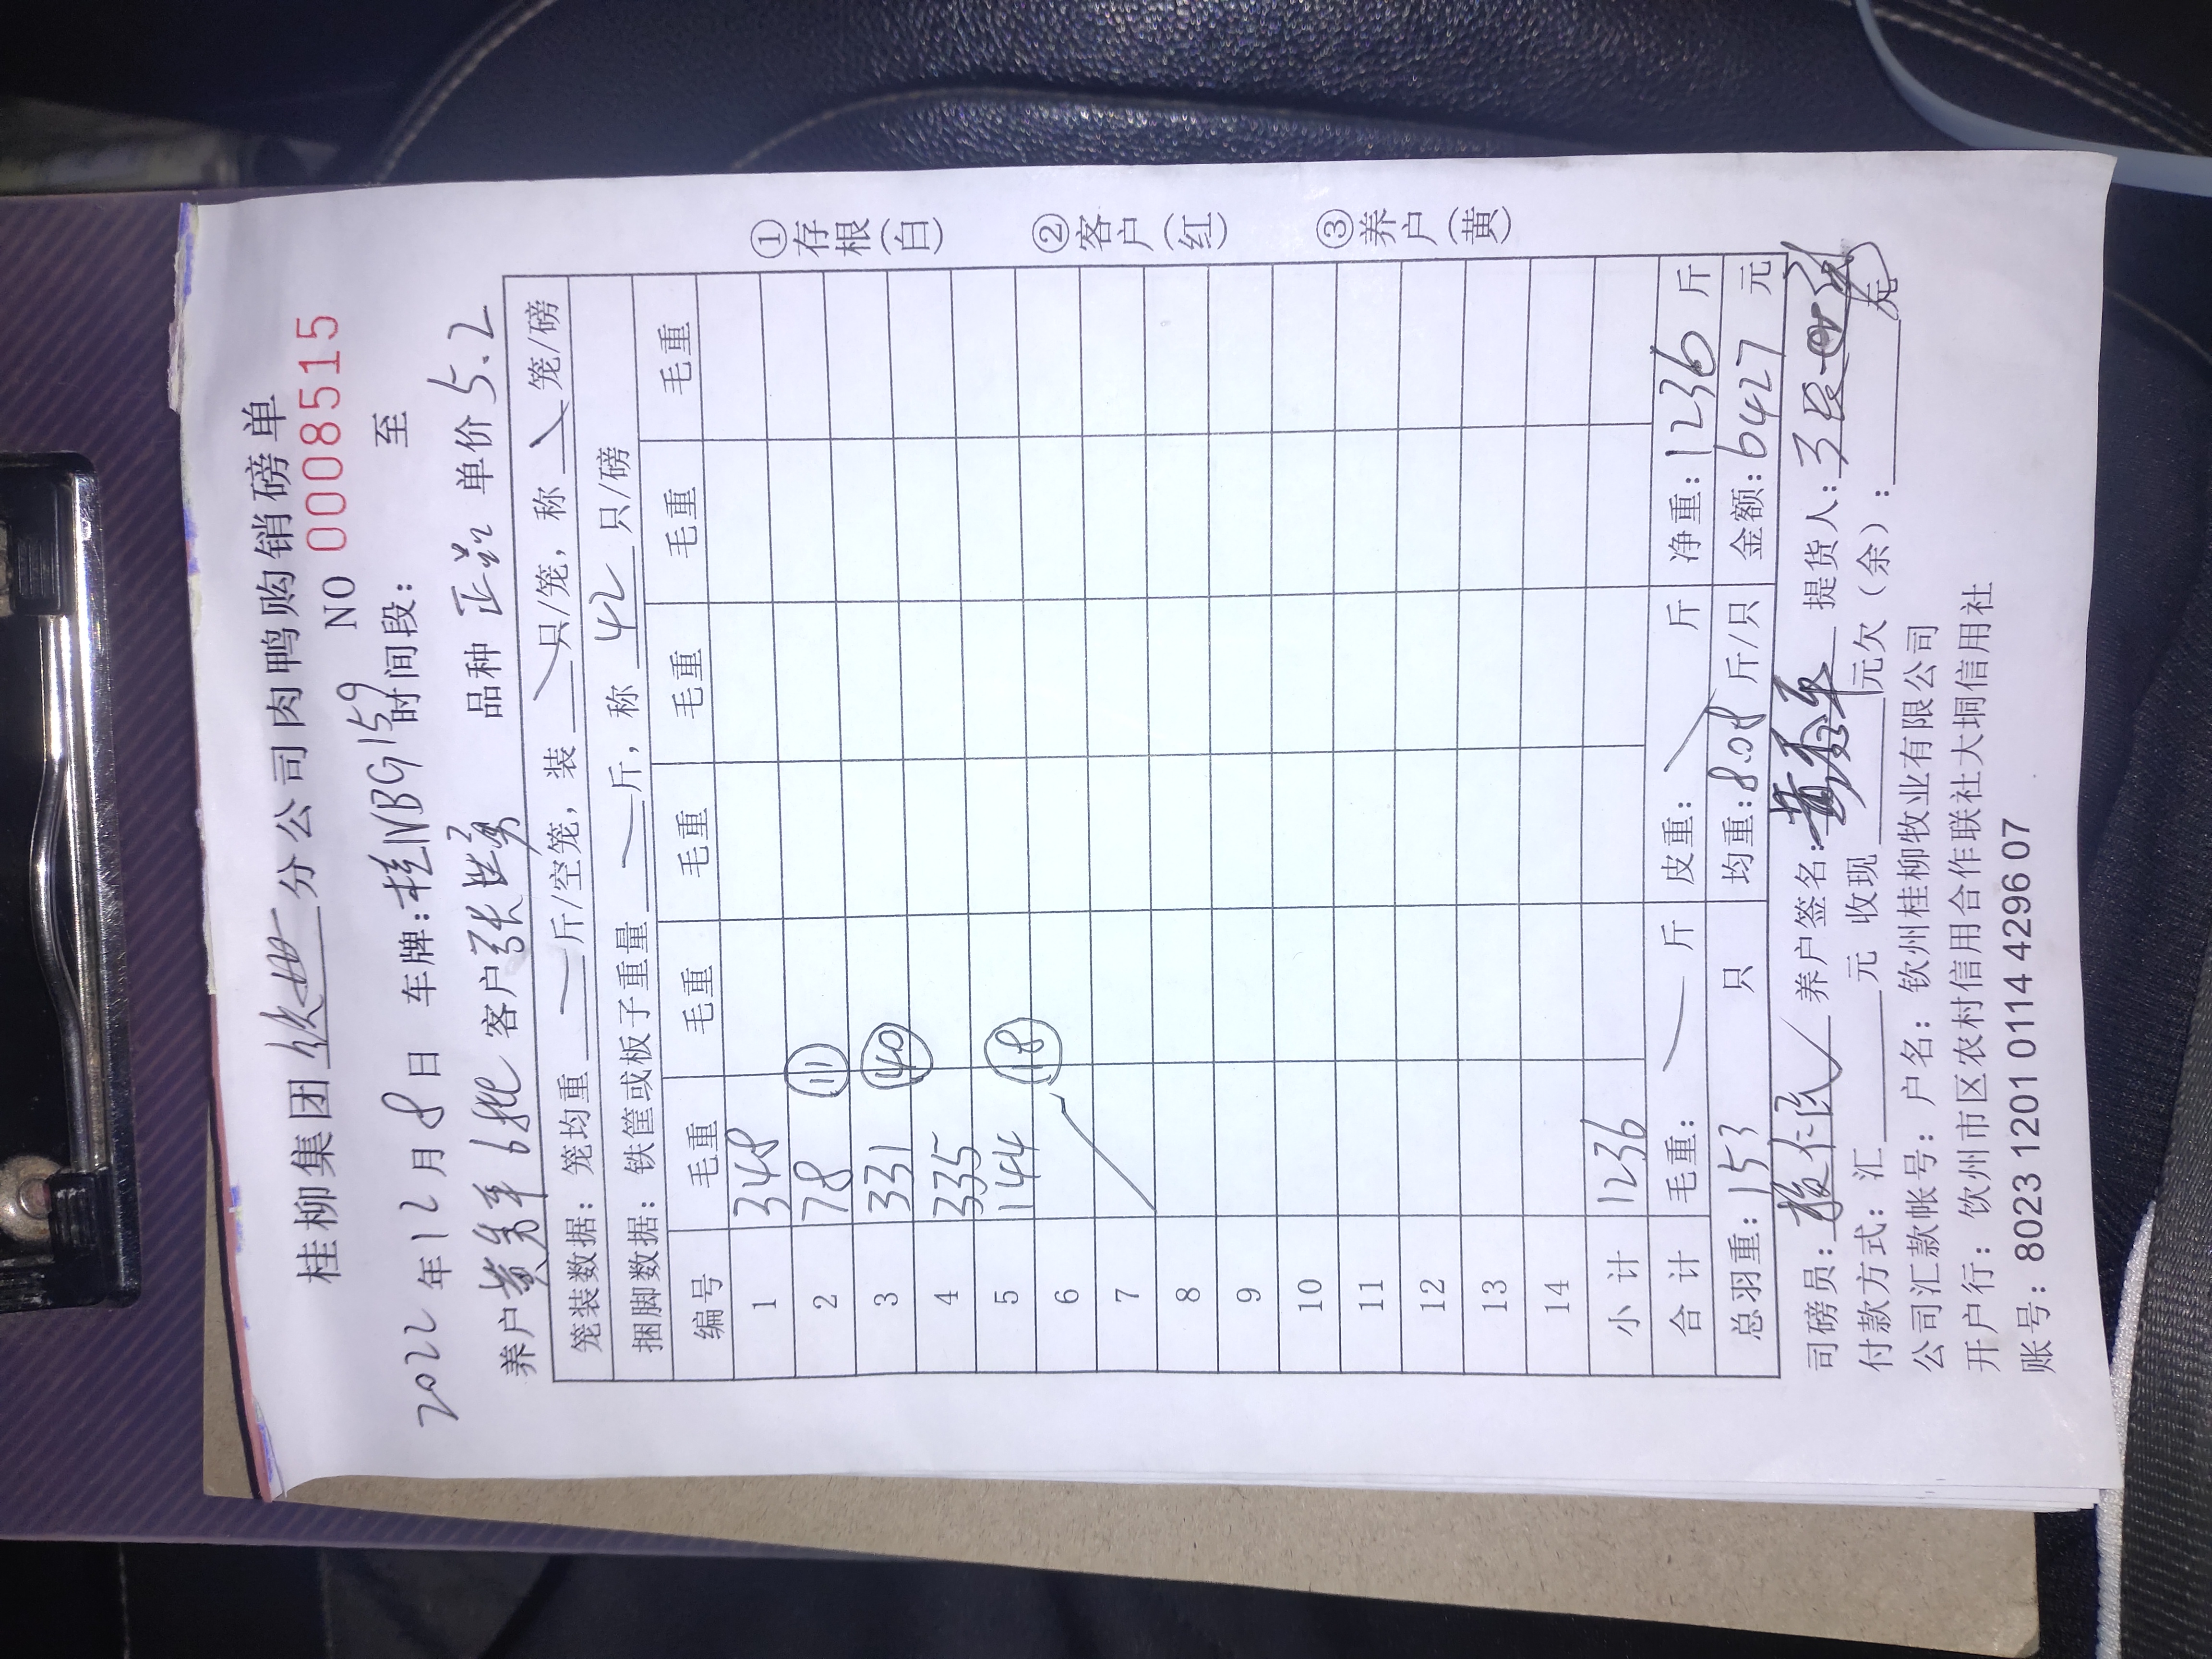 桂柳集团 分公司肉鸭购销磅单
NO 0008515
2022年12月8日 车牌:桂NBG159 时间段: 至
养户 6批 客户张世勇 品种 正 单价 5.2
笼装数据: 笼均重 斤/空笼, 装 只/笼, 称 笼/磅
捆脚数据: 铁筐或板子重量 斤, 称 42 只/磅
编号 毛重 毛重 毛重 毛重 毛重 毛重
1 348
2 78 ⑪
3 331 40
4 335
5 144 18
6
7
8
9
10
11
12
13
14
小计 1236
合计 毛重: 斤 皮重: 斤 净重: 1236 斤
总羽重: 153 只 均重: 8.08 斤/只 金额: 6427 元
司磅员: 养户签名: 提货人:
付款方式: 汇 元 收现 元欠(余): 元
公司汇款帐号: 户名: 钦州桂柳牧业有限公司
开户行: 钦州市区农村信用合作联社大垌信用社
账号: 8023 1201 0114 4296 07
①存根(白)
②客户(红)
③养户(黄)